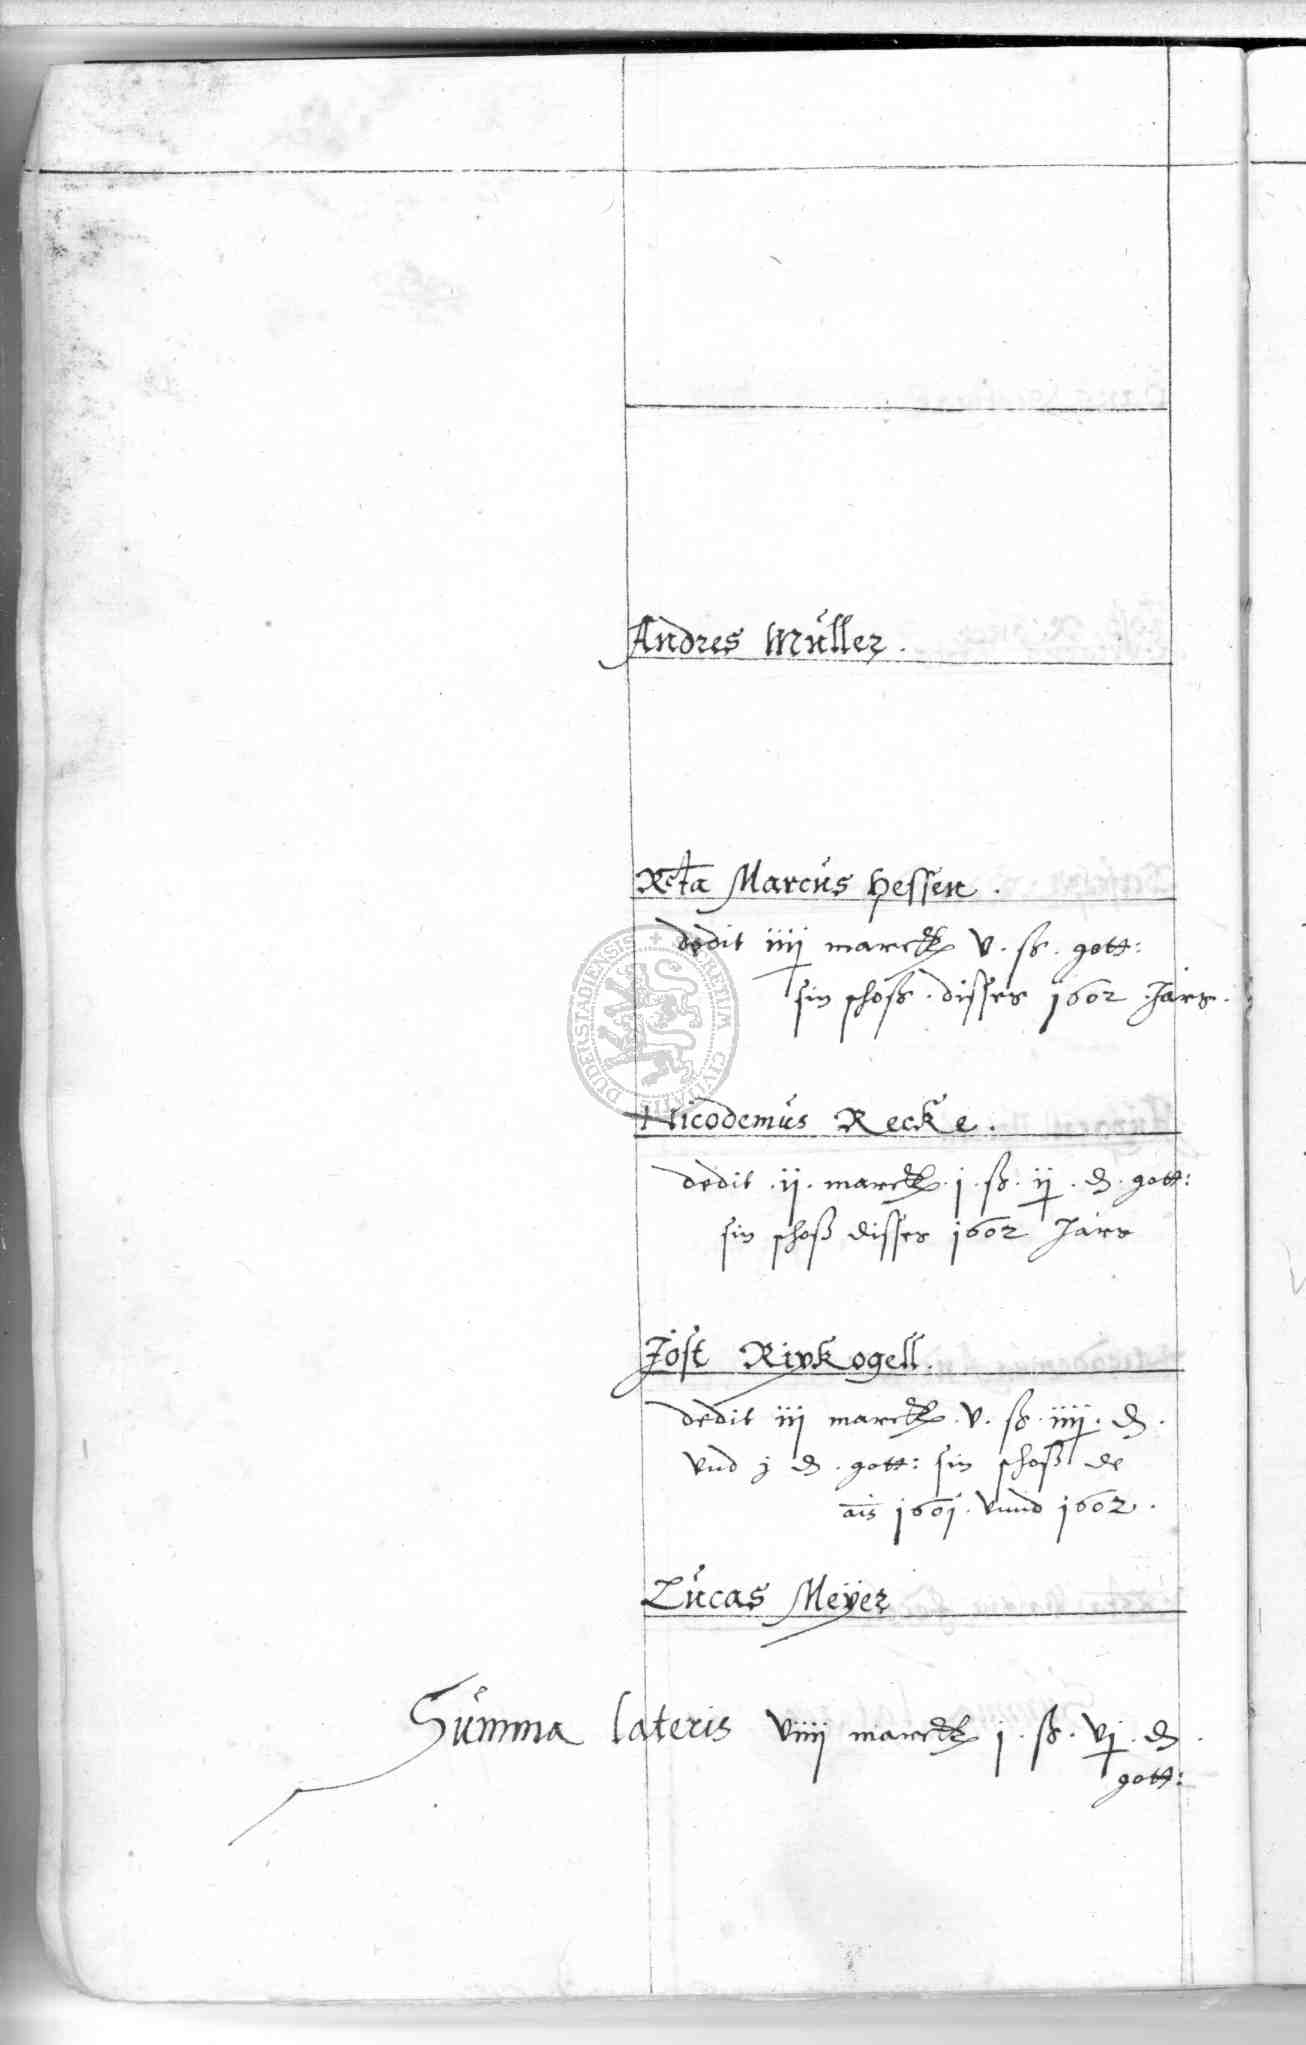 Andres Müller.
Reta Marcus Hessen.
dedit iiij marck v. ß. gott:
sin schoß. disses 1602 Jars.
Nicodemus Recke.
dedit .ij. marck. j. ß. ij. d. gott:
sin schoß disses 1602 Jars
Jost Ripkogell.
dedit iij marck. v. ß. iiij. d.
vnd j d. gott: sin schoß de
ais 1601. vnnd 1602.
Lucas Meyer
Summa lateris viiij marck j. ß. vj. d.
gott:
SECRETUM CIVITATIS DUDERSTADIENSIS